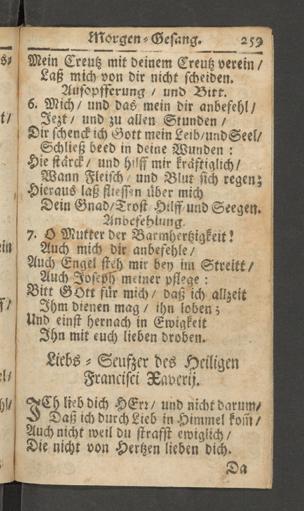 Morgen-Gesang. 259
Mein Creutz mit deinem Creutz verein/
Laß mich von dir nicht scheiden.
Aufopfferung / und Bitt.
6. Mich/ und das mein dir anbefehl/
Jezt/ und zu allen Stunden/
Dir schenck ich Gott mein Leib/und Seel/
Schließ beed in deine Wunden:
Hie stärck/ und hilff mir kräftiglich/
Wann Fleisch/ und Blut sich regen;
Hieraus laß fliessen über mich
Dein Gnad/Trost Hilff und Seegen.
Anbefehlung.
7. O Mutter der Barmhertzigkeit!
Auch mich dir anbefehle/
Auch Engel steh mir bey im Streitt/
Auch Joseph meiner pflege:
Bitt GOtt für mich/ daß ich allzeit
Ihm dienen mag/ ihn loben;
Und einst hernach in Ewigkeit
Ihn mit euch lieben droben.
Liebs-Seufzer des Heiligen
Francisci Xaverij.
ICh lieb dich HErr/ und nicht darum/
Daß ich durch Lieb in Himmel kom̃/
Auch nicht weil du straffst ewiglich/
Die nicht von Hertzen lieben dich.
Da